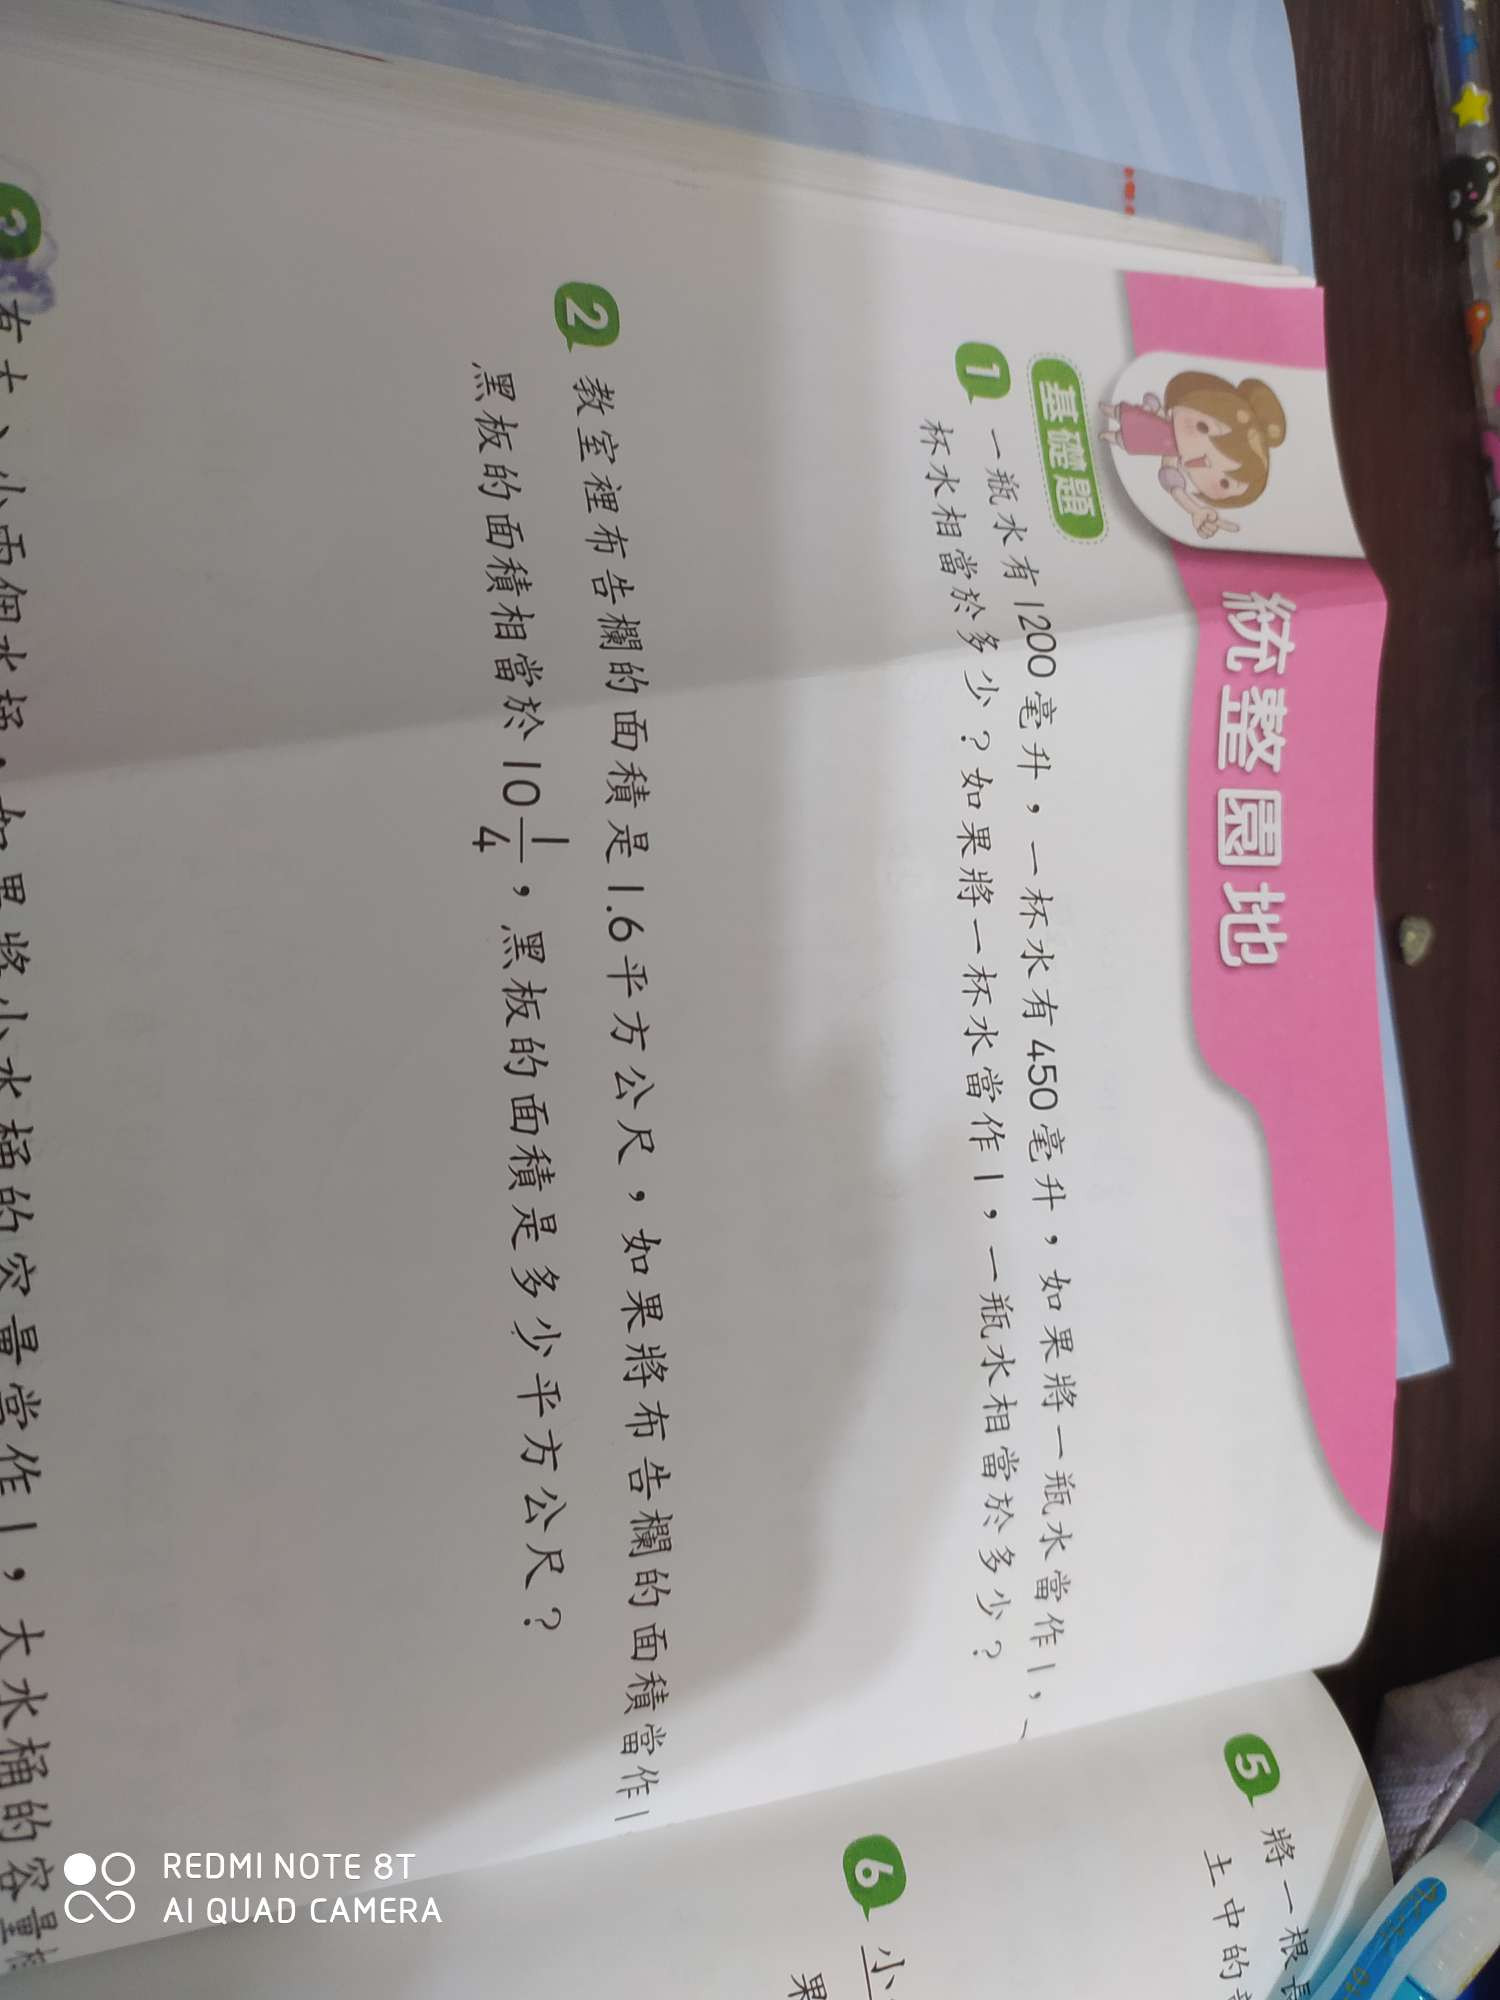 統整園地
基礎題
1 一瓶水有1200毫升，一杯水有450毫升，如果將一瓶水當作1，一
杯水相當於多少？如果將一杯水當作1，一瓶水相當於多少？
2 教室裡布告欄的面積是1.6平方公尺，如果將布告欄的面積當作1
黑板的面積相當於10 1/4，黑板的面積是多少平方公尺？
3 有大、小兩個水桶，如果將小水桶的容量當作1，大水桶的容量
5 將一根長
土中的
6 小
果
REDMI NOTE 8T
AI QUAD CAMERA